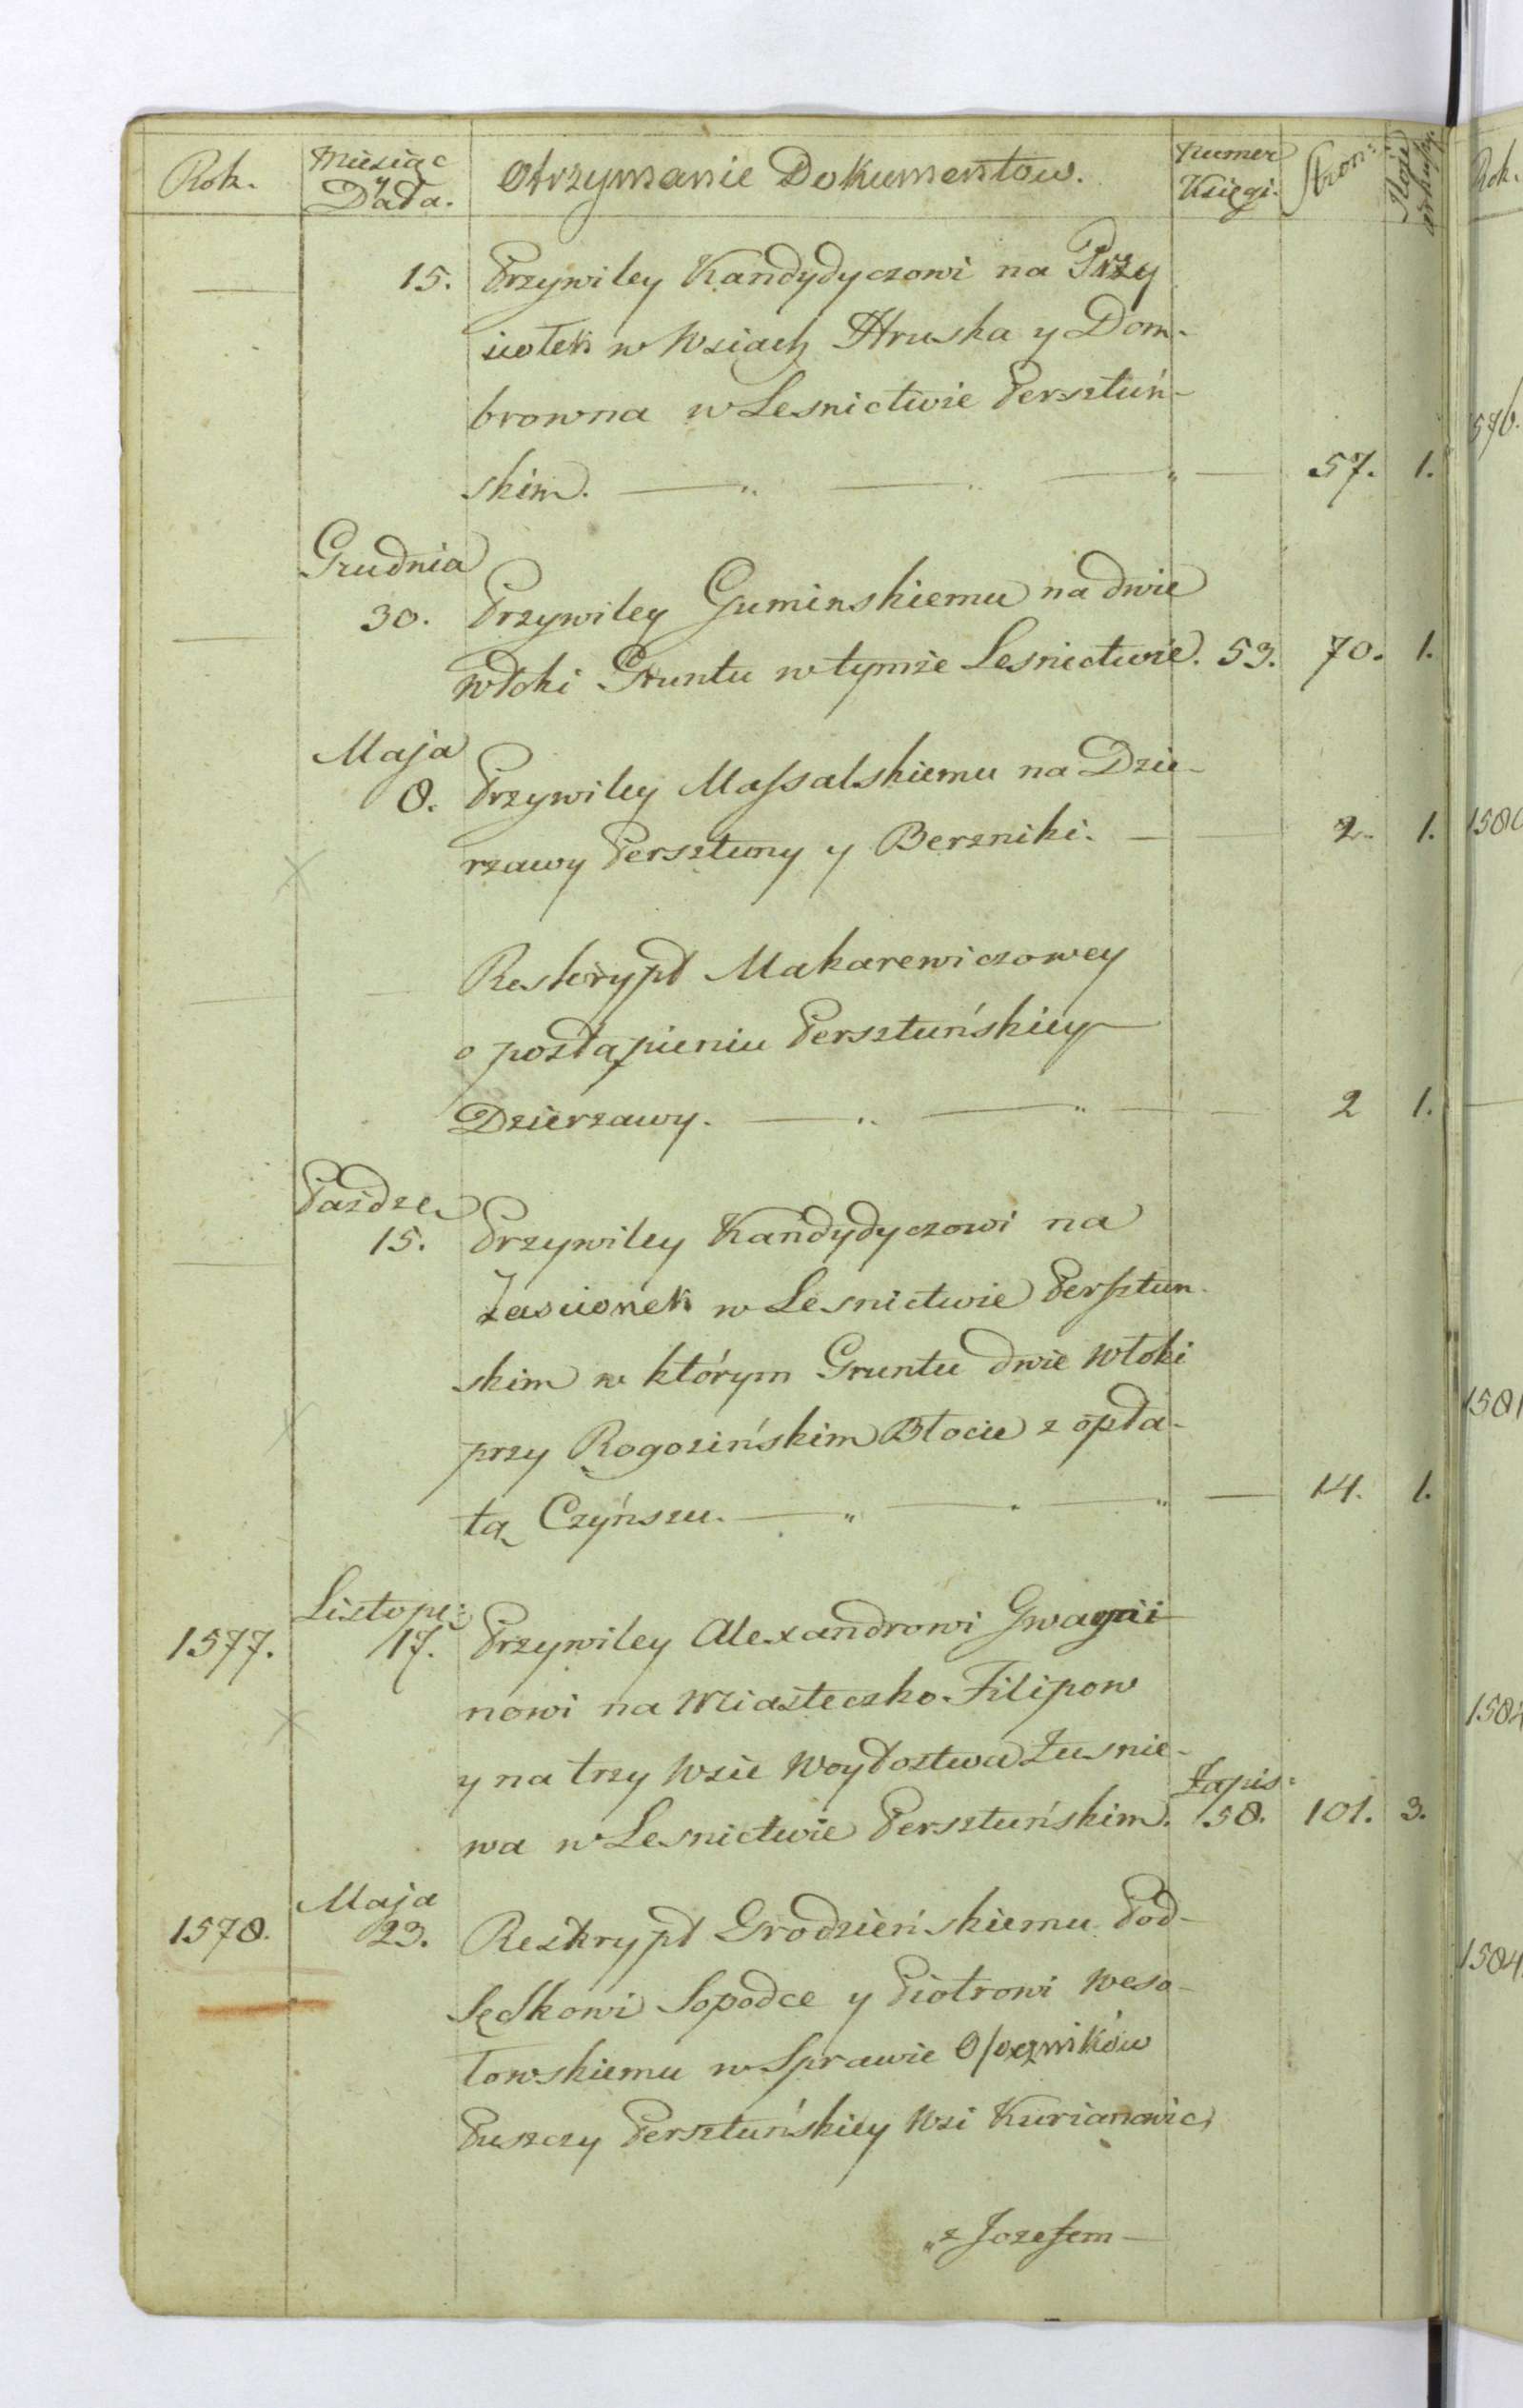 Rok. Miesiąc y Data. Otrzymanie Dokumentow. Numer Księgi. Stron: Ilość arkuszy.
— 15. Przywiley Kandydyczowi na Przy
siołek w Wsiach Hruska y Dom-
browna w Lesnictwie Persztuń-
skim. — „ — „ — „ — 57. 1.
Grudnia
— 30. Przywiley Guminskiemu na dwie
włoki Gruntu w tymże Lesnictwie. 53. 70. 1.
Maja
8. Przywiley Massalskiemu na Dzie-
rzawy Persztuny y Berzniki. — — 2. 1.
— — Reskrypt Makarewiczowey
o postąpieniu Persztuńskiey
Dzierzawy. — „ — „ — — 2 1.
Paźdze.
— 15. Przywiley Kandydyczowi na
Zascionek w Lesnictwie Persztun-
skim w którym Gruntu dwie włoki
przy Rogozińskim Błocie z opła-
tą Czyńszu. — „ — „ — „ — 14. 1.
Listopa:
1577. 17. Przywiley Alexandrowi Gwagnii-
nowi na Miasteczko Filipow
y na trzy Wsie Woytostwa Zusnie-
wa w Lesnictwie Persztuńskim. Zapis: 58. 101. 3.
Maja
1578. 23. Reskrypt Grodzieńskiemu Pod-
sędkowi Sopodce y Piotrowi Weso-
łowskiemu w Sprawie Osoczników
Puszczy Persztuńskiey Wsi Kurianowic
„z Jozefem —
Rok.
576.
1580
1581
1584